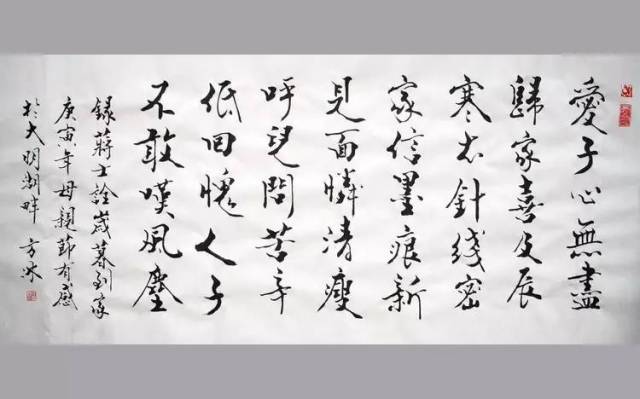 愛子心無盡
歸家喜及辰
寒衣針线密
家信墨痕新
見面憐清瘦
呼兒問苦辛
低回愧人子
不敢嘆風塵
録蔣士詮歲暮到家
庚寅年母親節有感
於大明湖畔 方冰